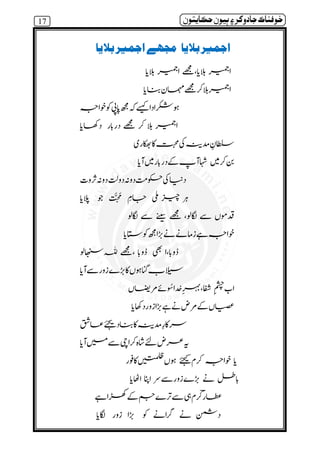 17
خوفناک جادوگر ۽ ٻيون حڪايتون
اجمیر بلایا مجھے اجمیر بلایا
اجمیر بلایا، مجھے اجمیر بلایا
اجمیر بلا کر مجھے مہمان بنایا
ہو شکر ادا کیسے کہ مجھ پاپی کو خواجہ
اجمیر بلا کر مجھے دربار دکھایا
سلطانِ مدینہ کی محبت کا بھکاری
بن کر میں شہا آپ کے دربار میں آیا
دنیا کی حکومت دو نہ دولت دو نہ ثروت
ہر چیز ملی جامِ مُحبّت جو پلایا
قدموں سے لگا لو، مجھے سینے سے لگا لو
خواجہ ہے زمانے نے بڑا مجھ کو ستایا
ڈوبا، ابھی ڈوبا، مجھے لِلّٰہ سنبھالو
سیلاب گناہوں کا بڑے زور سے آیا
اب چشمِ شفا، بہرِ خدا سوئے مریضاں
عصیاں کے مرض نے ہے بڑا زور دکھایا
سرکارِ مدینہ کا بنا دیجئے عاشق
یہ عرض لئے شاہ کراچی سے میں آیا
یا خواجہ کرم کیجئے ہوں ظلمتیں کافور
باطل نے بڑے زور سے سر اپنا اٹھایا
عطار کرم ہی سے ترے جم کے کھڑا ہے
دشمن نے گرانے کو بڑا زور لگایا